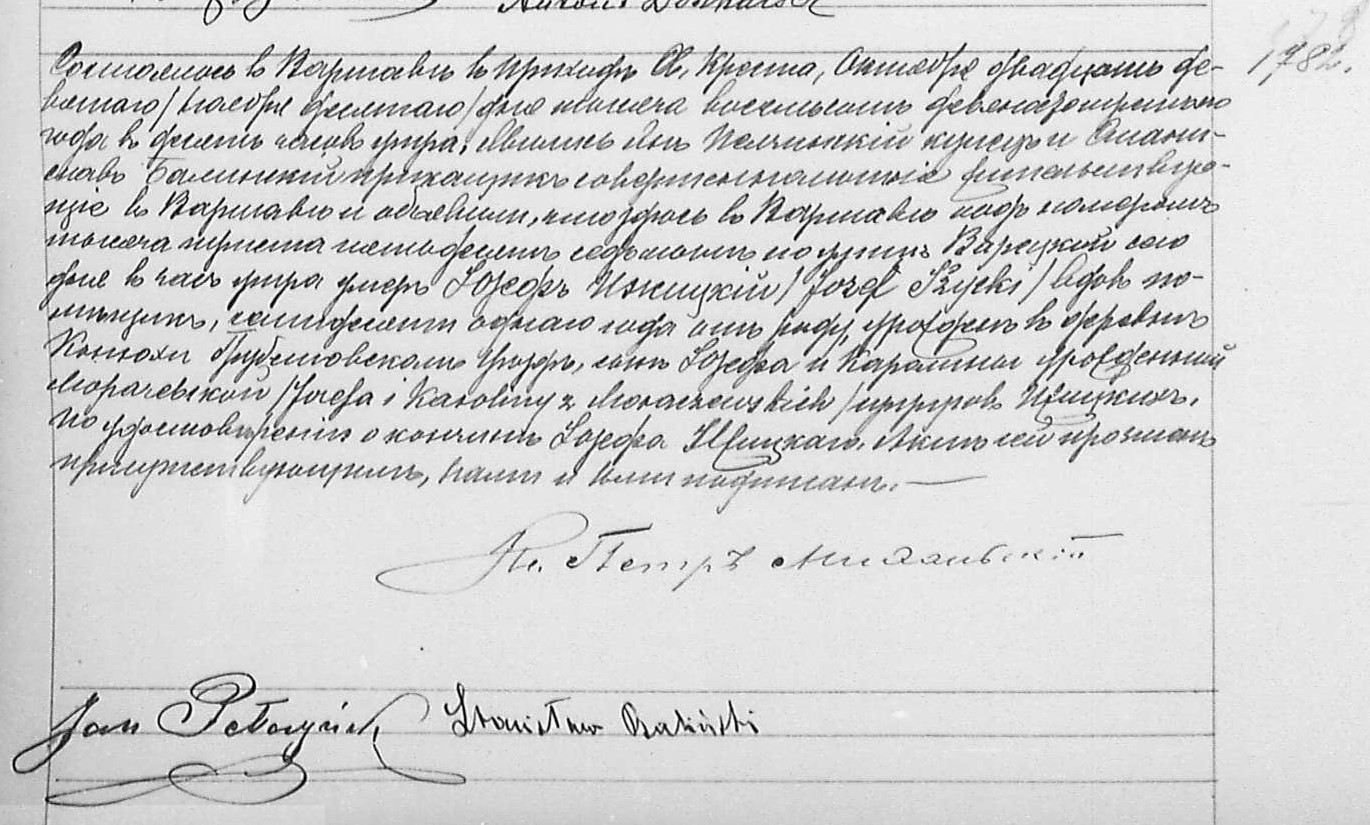 Antoni
1782.
Состоялось въ Варшавѣ въ приходѣ Св. Креста, Октября двадцать де-
вятаго/ Ноября десятаго/ дня тысяча восемьсотъ девяносто третьяго
года въ десять часовъ утра. Явились Янъ Пелчинскій купецъ и Стани-
славъ Балинскій прикащикъ совершеннолѣтніе жительствую-
щіе въ Варшавѣ и объявили, что здѣсь въ Варшавѣ подъ номеромъ
тысяча триста пятьдесятъ седьмымъ по улицѣ Варецкой сего
дня въ часъ утра умеръ Іозефъ Ижицкій / Józef Iżycki / вдовъ по-
мѣщикъ, семидесяти одного года отъ роду, урожден. въ деревнѣ
Конюхи Грубешовскомъ уѣздѣ, сынъ Іозефа и Каролины урожденной
Морачевской /Józefa i Karoliny z Moraczewskich / супруговъ Ижицкихъ.
По удостовѣреніи о кончинѣ Іозефа Ижицкаго. Актъ сей прочитанъ
присутствующимъ, Нами и ими подписанъ. —
Кс. Петръ
Jan Stanisław Baliński